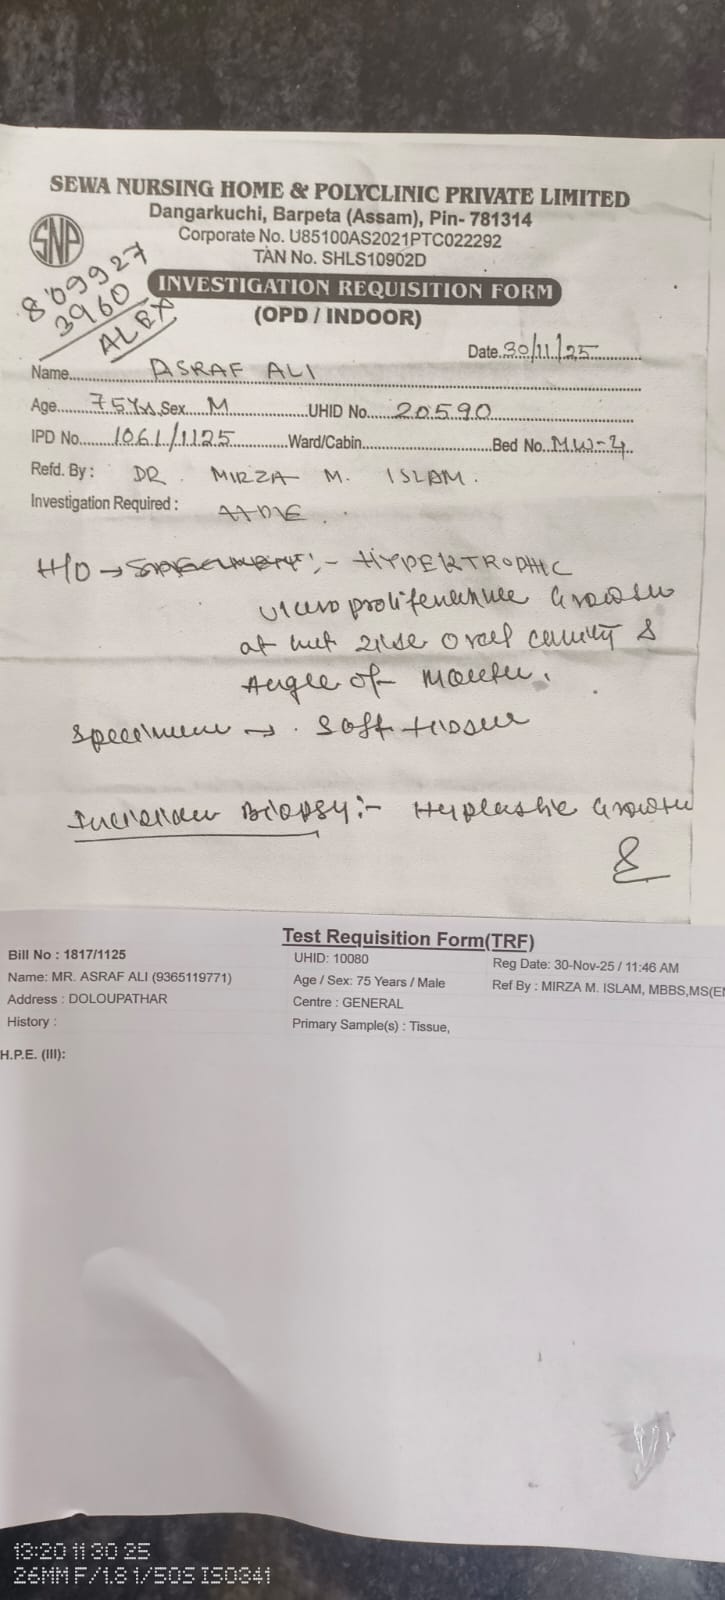 SEWA NURSING HOME & POLYCLINIC PRIVATE LIMITED
Dangarkuchi, Barpeta (Assam), Pin- 781314
Corporate No. U85100AS2021PTC022292
TAN No. SHLS10902D
SNP
809927
3960
ALEX
INVESTIGATION REQUISITION FORM
(OPD / INDOOR)
Date. 30/11/25
Name. ASRAF ALI
Age. 75 Yrs Sex. M UHID No. 20590
IPD No. 1061/1125 Ward/Cabin. Bed No. MW-4
Refd. By : DR. MIRZA M. ISLAM.
Investigation Required :
H/O → :- HYPERTROPHIC
Growth
at oral cavity &
Angle of Mouth.
Specimen → Soft tissue
Biopsy:- Growth
Test Requisition Form(TRF)
Bill No : 1817/1125 UHID: 10080 Reg Date: 30-Nov-25 / 11:46 AM
Name: MR. ASRAF ALI (9365119771) Age / Sex: 75 Years / Male Ref By : MIRZA M. ISLAM, MBBS,MS(E
Address : DOLOUPATHAR Centre : GENERAL
History : Primary Sample(s) : Tissue,
H.P.E. (III):
13:20 11 30 25
26MM F/1.8 1/50S ISO341